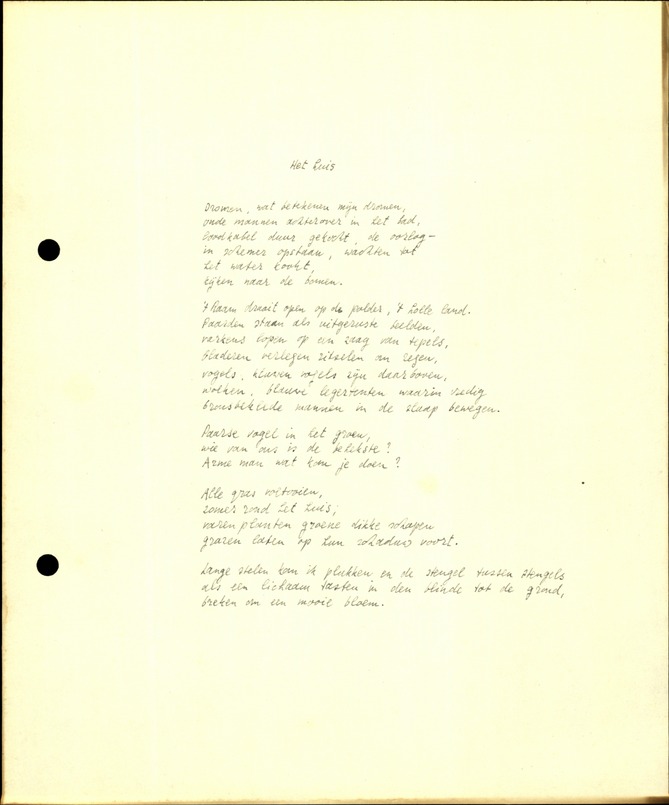 Het Huis
Dromen, wat betekenen mijn dromen,
oude mannen achterover in het bad,
loodkabel duur gekocht, de oorlog-
in schemer opstaan, wachten tot
het water kookt,
kijken naar de bomen.
't Raam draait open op de polder, 't holle land.
Paarden staan als uitgeruste helden,
varkens lopen op een zaag van tepels,
bladeren verlegen ritselen om regen,
vogels, vogels zijn daarboven,
wolken, blauwe legertenten waarin vredig
bronsbeklede mannen in de slaap bewegen.
Paarse vogel in het groen,
wie van ons is de betekste?
Arme man wat kom je doen?
Alle gras voltooien,
zomer rond het huis;
varenplanten groene dikke schapen
grazen laten op hun schaduw voort.
Lange stelen kan ik plukken en de stengel tussen stengels
als een lichaam tasten in den blinde tot de grond,
breken om een mooie bloem.